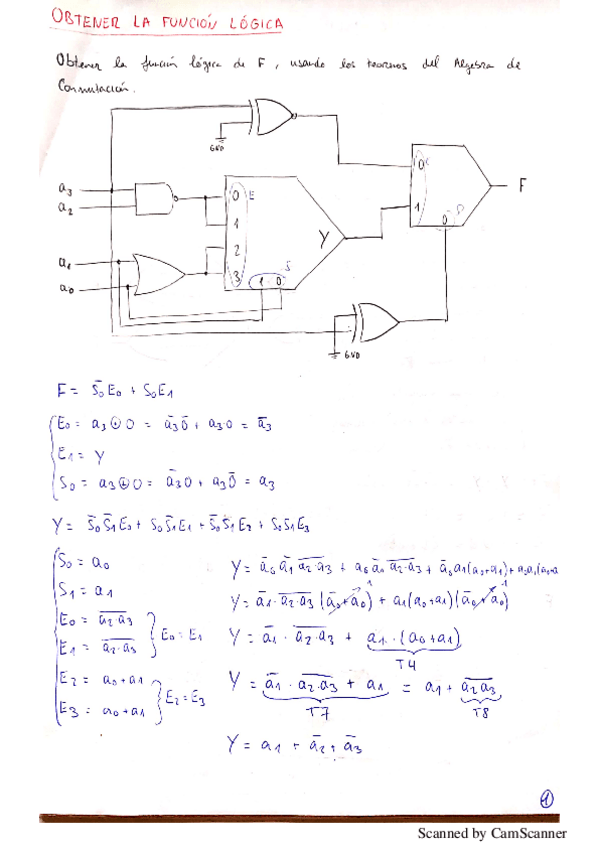 OBTENER LA FUNCIÓN LÓGICA
Obtener la función lógica de F, usando los teoremas del Algebra de
Conmutación.
GND
a3
a2
a1
a0
0 E
1
2
3
1 0
S
Y
0
1
0
F
GND
F = S̄0E0 + S0E1
E0 = a3 ⊙ 0 = ā3 0̄ + a3 0 = ā3
E1 = Y
S0 = a3 ⊕ 0 = ā3 0 + a3 0̄ = a3
Y = S̄0 S̄1 E0 + S0 S̄1 E1 + S̄0 S1 E2 + S0 S1 E3
S0 = a0
S1 = a1
E0 = \overline{a2·a3}
E1 = \overline{a2·a3}
E0 = E1
E2 = a0+a1
E3 = a0+a1
E2 = E3
Y = ā0 ā1 \overline{a2·a3} + a0 ā1 \overline{a2·a3} + ā0 a1(a0+a1) + a0 a1(a0+a
Y = ā1 · \overline{a2·a3} (ā0+a0) + a1(a0+a1)(ā0+a0)
1
1
Y = ā1 · \overline{a2·a3} + a1 · (a0+a1)
T4
Y = ā1 · \overline{a2·a3} + a1 = a1 + \overline{a2a3}
T7 T8
Y = a1 + ā2 + ā3
1
Scanned by CamScanner